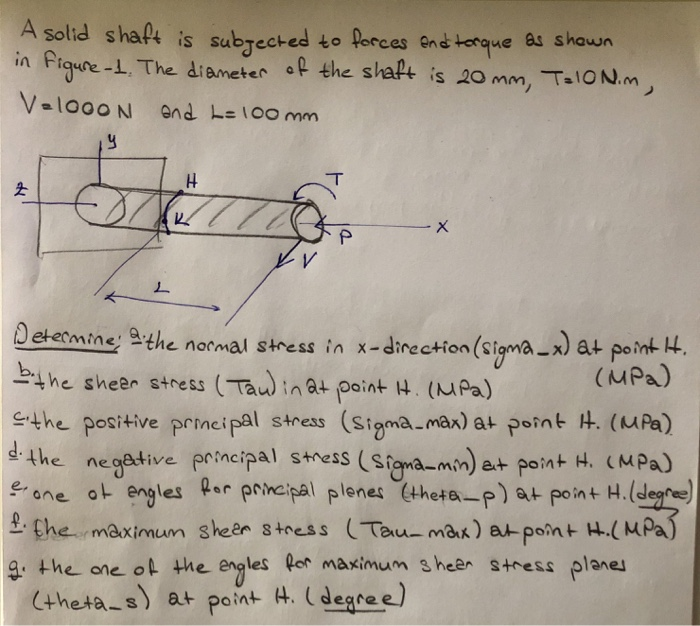 A solid shaft is subjected to forces and torque as shown
in Figure-1. The diameter of the shaft is 20 mm, T=10 N.m,
V=1000 N and L=100 mm
y
H
T
z
K
x
P
V
L
Determine; a. the normal stress in x-direction (sigma_x) at point H.
(MPa)
b. the sheer stress (Tau) in at point H. (MPa)
c. the positive principal stress (sigma_max) at point H. (MPa)
d. the negative principal stress (sigma_min) at point H. (MPa)
e. one of engles for principal planes (theta_p) at point H. (degree)
f. the maximum sheer stress (Tau_max) at point H. (MPa)
g. the one of the engles for maximum sheer stress planes
(theta_s) at point H. (degree)